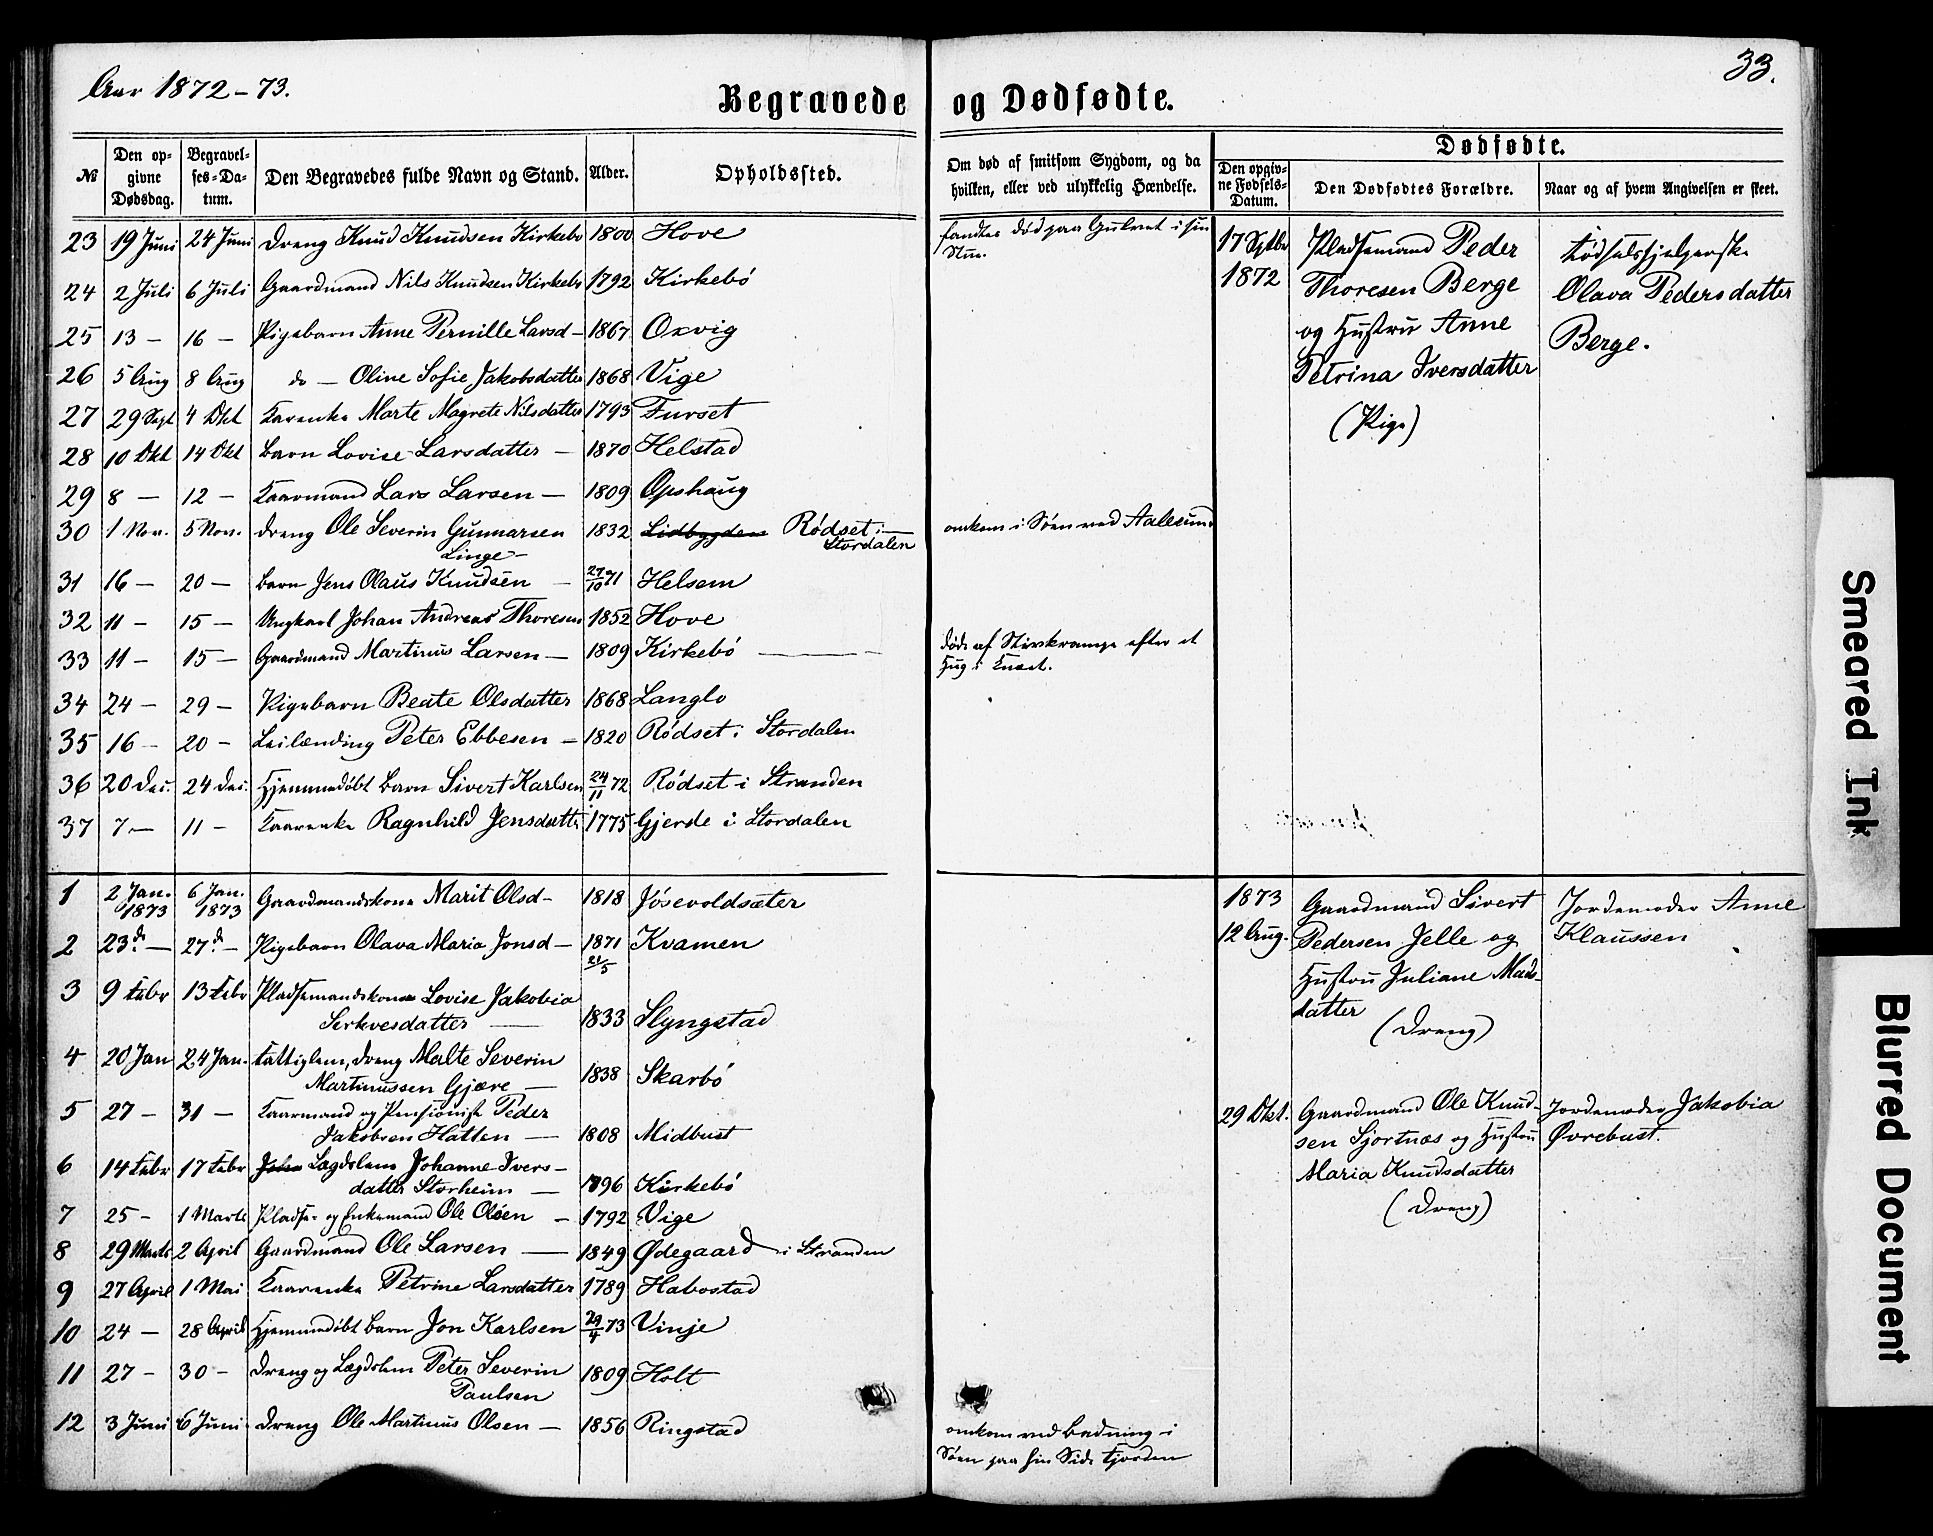 Aar 1872-73.
33.
Begravede og Dødfødte.
№
Den op-
givne
Dødsdag.
Begravel-
ses-Da-
tum.
Den Begravedes fulde Navn og Stand.
Alder.
Opholdssted.
Om død af smitsom Sygdom, og da
hvilken, eller ved ulykkelig Hændelse.
Dødfødte.
Den opgiv-
ne Fødsels-
Datum.
Den Dødfødtes Forældre.
Naar og af hvem Angivelsen er skeet.
23 19 Juni 24 Juni Dreng Knud Knudsen Kirkebø 1800 Hove
fandtes død paa Gulvet i sin
Stue.
24 2 Juli 6 Juli Gaardmand Nils Knudsen Kirkebø 1792 Kirkebö
25 13 - 16 - Pigebarn Anne Pernille Larsd - 1867 Oxvig
26 5 Aug 8 Aug do - Oline Sofie Jakobsdatter 1868 Vige
27 29 Sept 4 Okt Kaarenke Marte Magrete Nilsdatter 1793 Furset
28 10 Okt 14 Okt Barn Lovise Larsdatter - 1870 Helstad
29 8 - 12 - Kaarmand Lars Larsen - 1809 Opshaug
30 1 Nov. 5 Nov. Dreng Ole Severin Gunnarsen 1832 Lidbygden Rödset i
Linge - Stordalen
omkom i Söen ved Aalesund
31 16 - 20 - Barn Jens Olaus Knudsen - 27/10 71 Helsem
32 11 - 15 - Ungkarl Johan Andreas Thoresen 1852 Hove
33 11 - 15 - Gaardmand Martinus Larsen - 1809 Kirkebö
døde af Stivkrampe efter et
Hug i Knæet.
34 24 - 29 - Pigebarn Beate Olsdatter 1868 Langlo
35 16 - 20 - Leilænding Peter Ebbesen - 1820 Rödset i Stordalen
36 20 Dec. 24 Dec. Hjemmedøbt Barn Sivert Karlsen 24/11 72 Rödset i Stranden
37 7 - 11 - Kaarenke Ragnhild Jensdatter 1775 Gjerde i Stordalen
17 Septbr
1872
Pladsemand Peder
Thoresen Berge
og Hustru Anne
Petrina Iversdatter
(Pige)
Fødselshjelperske
Olava Pedersdatter
Berge.
1 2 Jan. 1873 6 Jan. 1873 Gaardmandskone Marit Olsd - 1818 Jösevoldsæter
2 23d - 27d - Pigebarn Olava Maria Jonsd - 1871 21/5 Kvamen
3 9 Febr 13 Febr Pladsemandskone Lovise Jakobia
Serkvesdatter - 1833 Slyngstad
4 20 Jan 24 Jan. Fattiglem, Dreng Malte Severin
Martinussen Gjære - 1838 Skarbö
5 27 - 31 - Kaarmand og Pensionist Peder
Jakobsen Hatlen - 1808 Midbust
6 14 Febr 17 Febr Lægdslem Johanne Ivers-
datter Storheim - 1796 Kirkebö
7 25 - 1 Marts Pladse- og Enkemand Ole Olsen - 1792 Vige
8 29 Marts 2 April Gaardmand Ole Larsen - 1849 Ødegaard i Stranden
9 27 April 1 Mai Kaarenke Petrine Larsdatter 1789 Habostad
10 24 - 28 April Hjemmedøbt Barn Jon Karlsen 29/4 73 Vinje
11 27 - 30 - Dreng og Lægdslem Peter Severin
Paulsen 1809 Holt
12 3 Juni 6 Juni Dreng Ole Martinus Olsen - 1856 Ringstad
omkom ved Badning i
Söen paa hin Side Fjorden
1873
12 Aug.
Gaardmand Sivert
Pedersen Jelle og
Hustru Juliane Mads-
datter
(Dreng)
Jordemoder Anne
Klaussen
29 Okt.
Gaardmand Ole Knud-
sen Sjortnæs og Hustru
Maria Knudsdatter
(Dreng)
Jordemoder Jakobia
Øvrebust.
Smeared Ink
Blurred Document